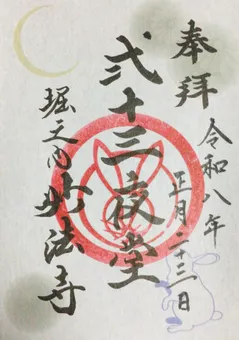 奉拝
令和八年
正月二十三日
弐十三夜堂
堀之内
妙法寺